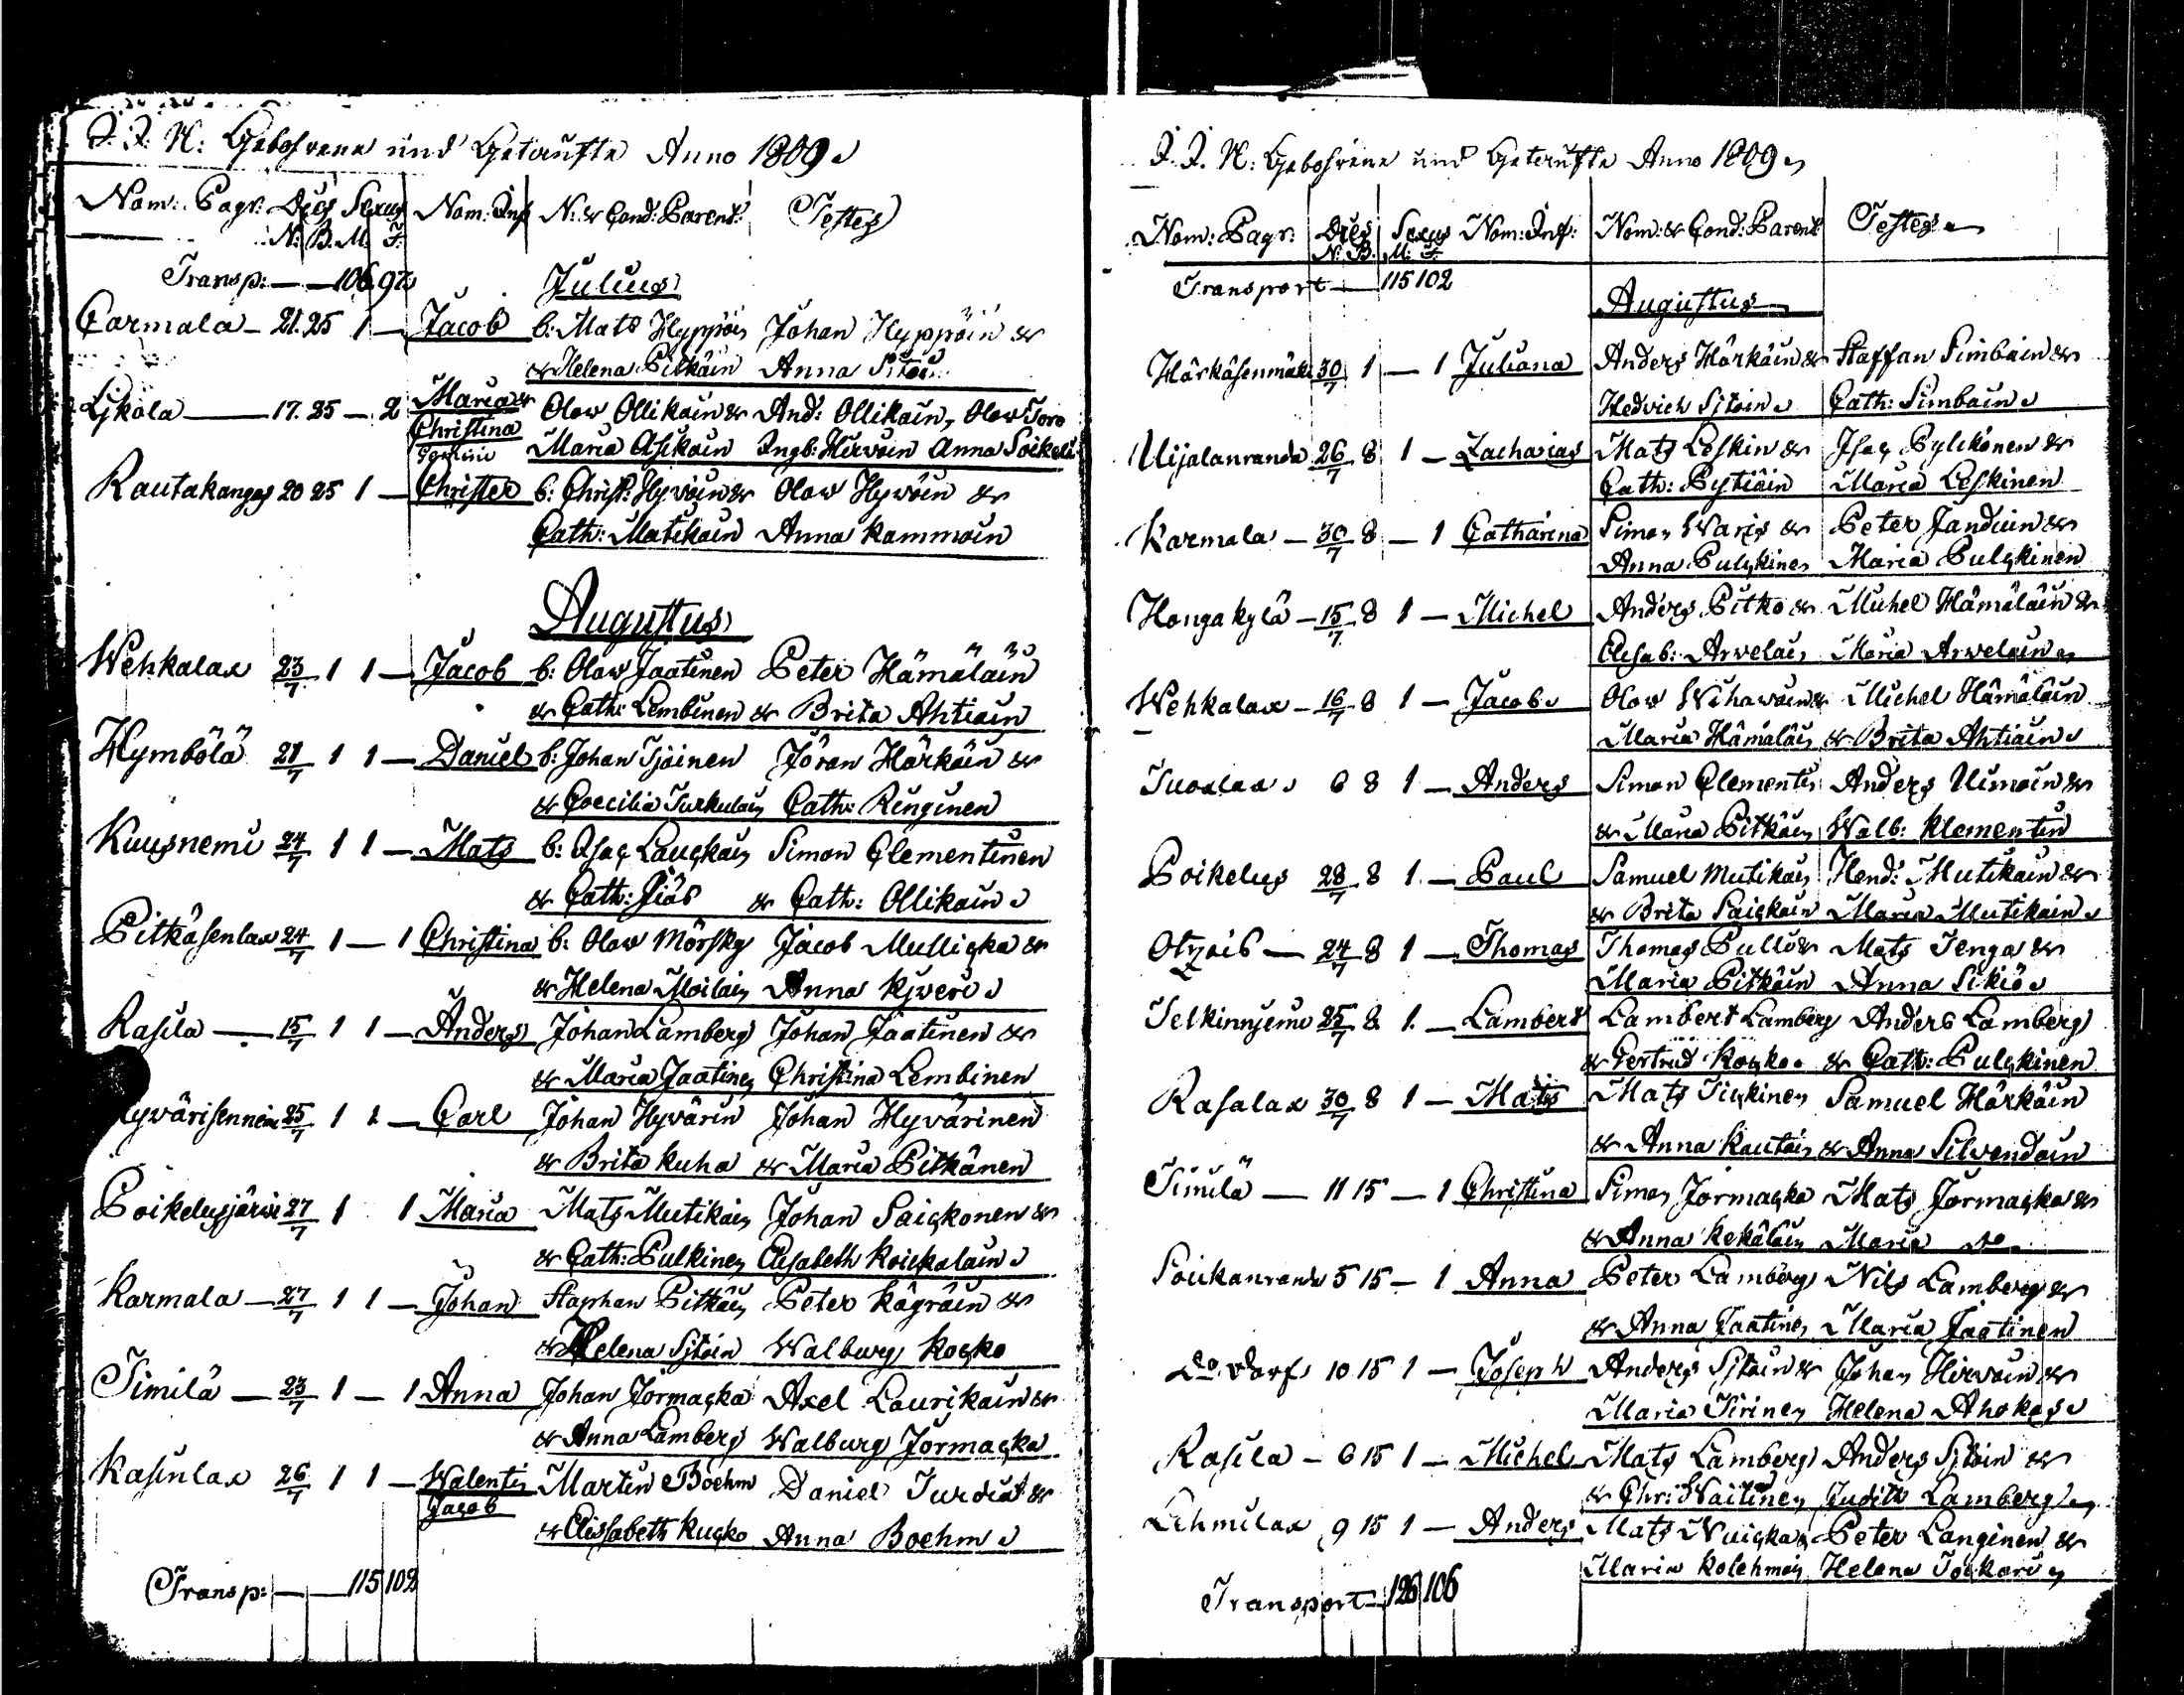 J. J. N: Gebohrene und Getaufte Anno 1809.
Nom: Pagi: Dies Sexus Nom: Inf N: & Cond: Parent: Testes
N. B. M. F.
Transp: — — 106 97
Julius
Carmala — 21. 25 1 — Jacob b: Mats Hyppöin Johan Hyppöin &
& Helena Pitkäin Anna
Kjköla — 17. 25 — 2 Maria & Olow Ollikain & And: Ollikain, Olow Toro
Christina Maria Asikain Ingb: Hirvoin Anna
Gemini
Rautakangas 20 25 1 — Christer b: Christ: Hyvöin & Olow Hyvöin &
Cath: Matikain Anna Kammoin
Augustus
Wehkalax 23/7 1 1 — Jacob b: Olow Jaatinen Peter Hämäläin
& Cath: Lembinen & Brita Ahtiain
Hymbölä 21/7 1 1 — Daniel b: Johan Sjöinen Jöran Härkäin &
& Coecilia Turkulain Cath: Ringinen
Kuusnemi 24/7 1 1 — Mats b: Isac Lauckain Simon Clementinen
& Cath: & Cath: Ollikain
Pitkäsenlax 24/7 1 — 1 Christina b: Olow Mörsky Jacob Mullicka &
& Helena Moilain Anna Kjweri
Rasila — 15/7 1 1 — Anders Johan Lamberg Johan Jaatinen &
& Maria Jaatinen Christina Lembinen
Hyvärisennemi 25/7 1 1 — Carl Johan Hyvärin Johan Hyvärinen
& Brita Kuha & Maria Pitkänen
Poikelusjärwi 27/7 1 1 Maria Mats Mutikain Johan Saickonen &
& Cath: Pulkinen Elisabeth Koickalain
Karmala — 27/7 1 1 — Johan Staphan Pitkäin Peter Kägräin &
& Helena Sjtoin Walburg Kocko
Timilä — 23/7 1 — 1 Anna Johan Jormacka Axel Laurikain &
& Anna Lamberg Walburg Jormacka
Kasinlax 26/7 1 1 — Walentin Martin Boehm Daniel &
Jacob
& Elisabeth Kucko Anna Boehm
Transp: — — 115 102
J. J. N: Gebohrene und Getaufte Anno 1809.
Nom: Pagi: Dies Sexus Nom: Inf: Nom: & Cond: Parent Testes
N. B. M: F.
Transport — 115 102
Augustus
Härkäsenmäki 30/7 1 — 1 Juliana Anders Härkäin & Staffan Simbain &
Hedvich Sjtoin Cath: Simbain
Uijalanranda 26/7 8 1 — Zacharias Mats Leskin & Isac Pylckönen &
Cath: Pytiäin Maria Leskinen
Karmala — 30/7 8 — 1 Catharina Simon Waris & Peter Janduin &
Anna Pulckinen Maria Pulckinen
Hongakylä — 15/7 8 1 — Michel Anders Pitko & Michel Hämäläin &
Elisab: Arwelain Maria Arwelain
Wehkalax — 16/7 8 1 — Jacob Olow Wihawain & Michel Hämäläin
Maria Hämäläin & Brita Ahtiain
Tuoxlax 6 8 1 — Anders Simon Clementin Anders Uimoin &
& Maria Pitkäin Walb: Klementin
Poikelus 28/7 8 1 — Paul Samuel Mutikain Hend: Mutikain &
& Brita Saickain Maria Mutikain
24/7 8 1 — Thomas Thomas Pulli & Mats Tenga &
Maria Pitkäin Anna Sikiö
Selkinnjemi 25/7 8 1 — Lambert Lambert Lamberg Anders Lamberg
& Gertrud Kocko & Cath: Pulckinen
Rasalax 30/7 8 1 — Mats Mats Tickinen Samuel Härkäin
& Anna Rautain & Anna Silvendoin
Timilä — 11 15 — 1 Christina Simon Jormacka Mats Jormacka &
& Anna Kekäläin Maria do
Soukanranda 5 15 — 1 Anna Peter Lamberg Nils Lamberg &
& Anna Jaatinen Maria Jaatinen
do dorf 10 15 1 — Joseph Anders Sjtoin & Johan Hirvoin &
Maria Piirinen Helena Ahokas
Rasila — 6 15 1 — Michel Mats Lamberg Anders Sjtoin &
& Chr: Waitinen Judith Lamberg
Lehmilax 9 15 1 — Anders Mats Nuicka & Peter Langinen &
Maria Kolehmain Helena
Transport — 126 106